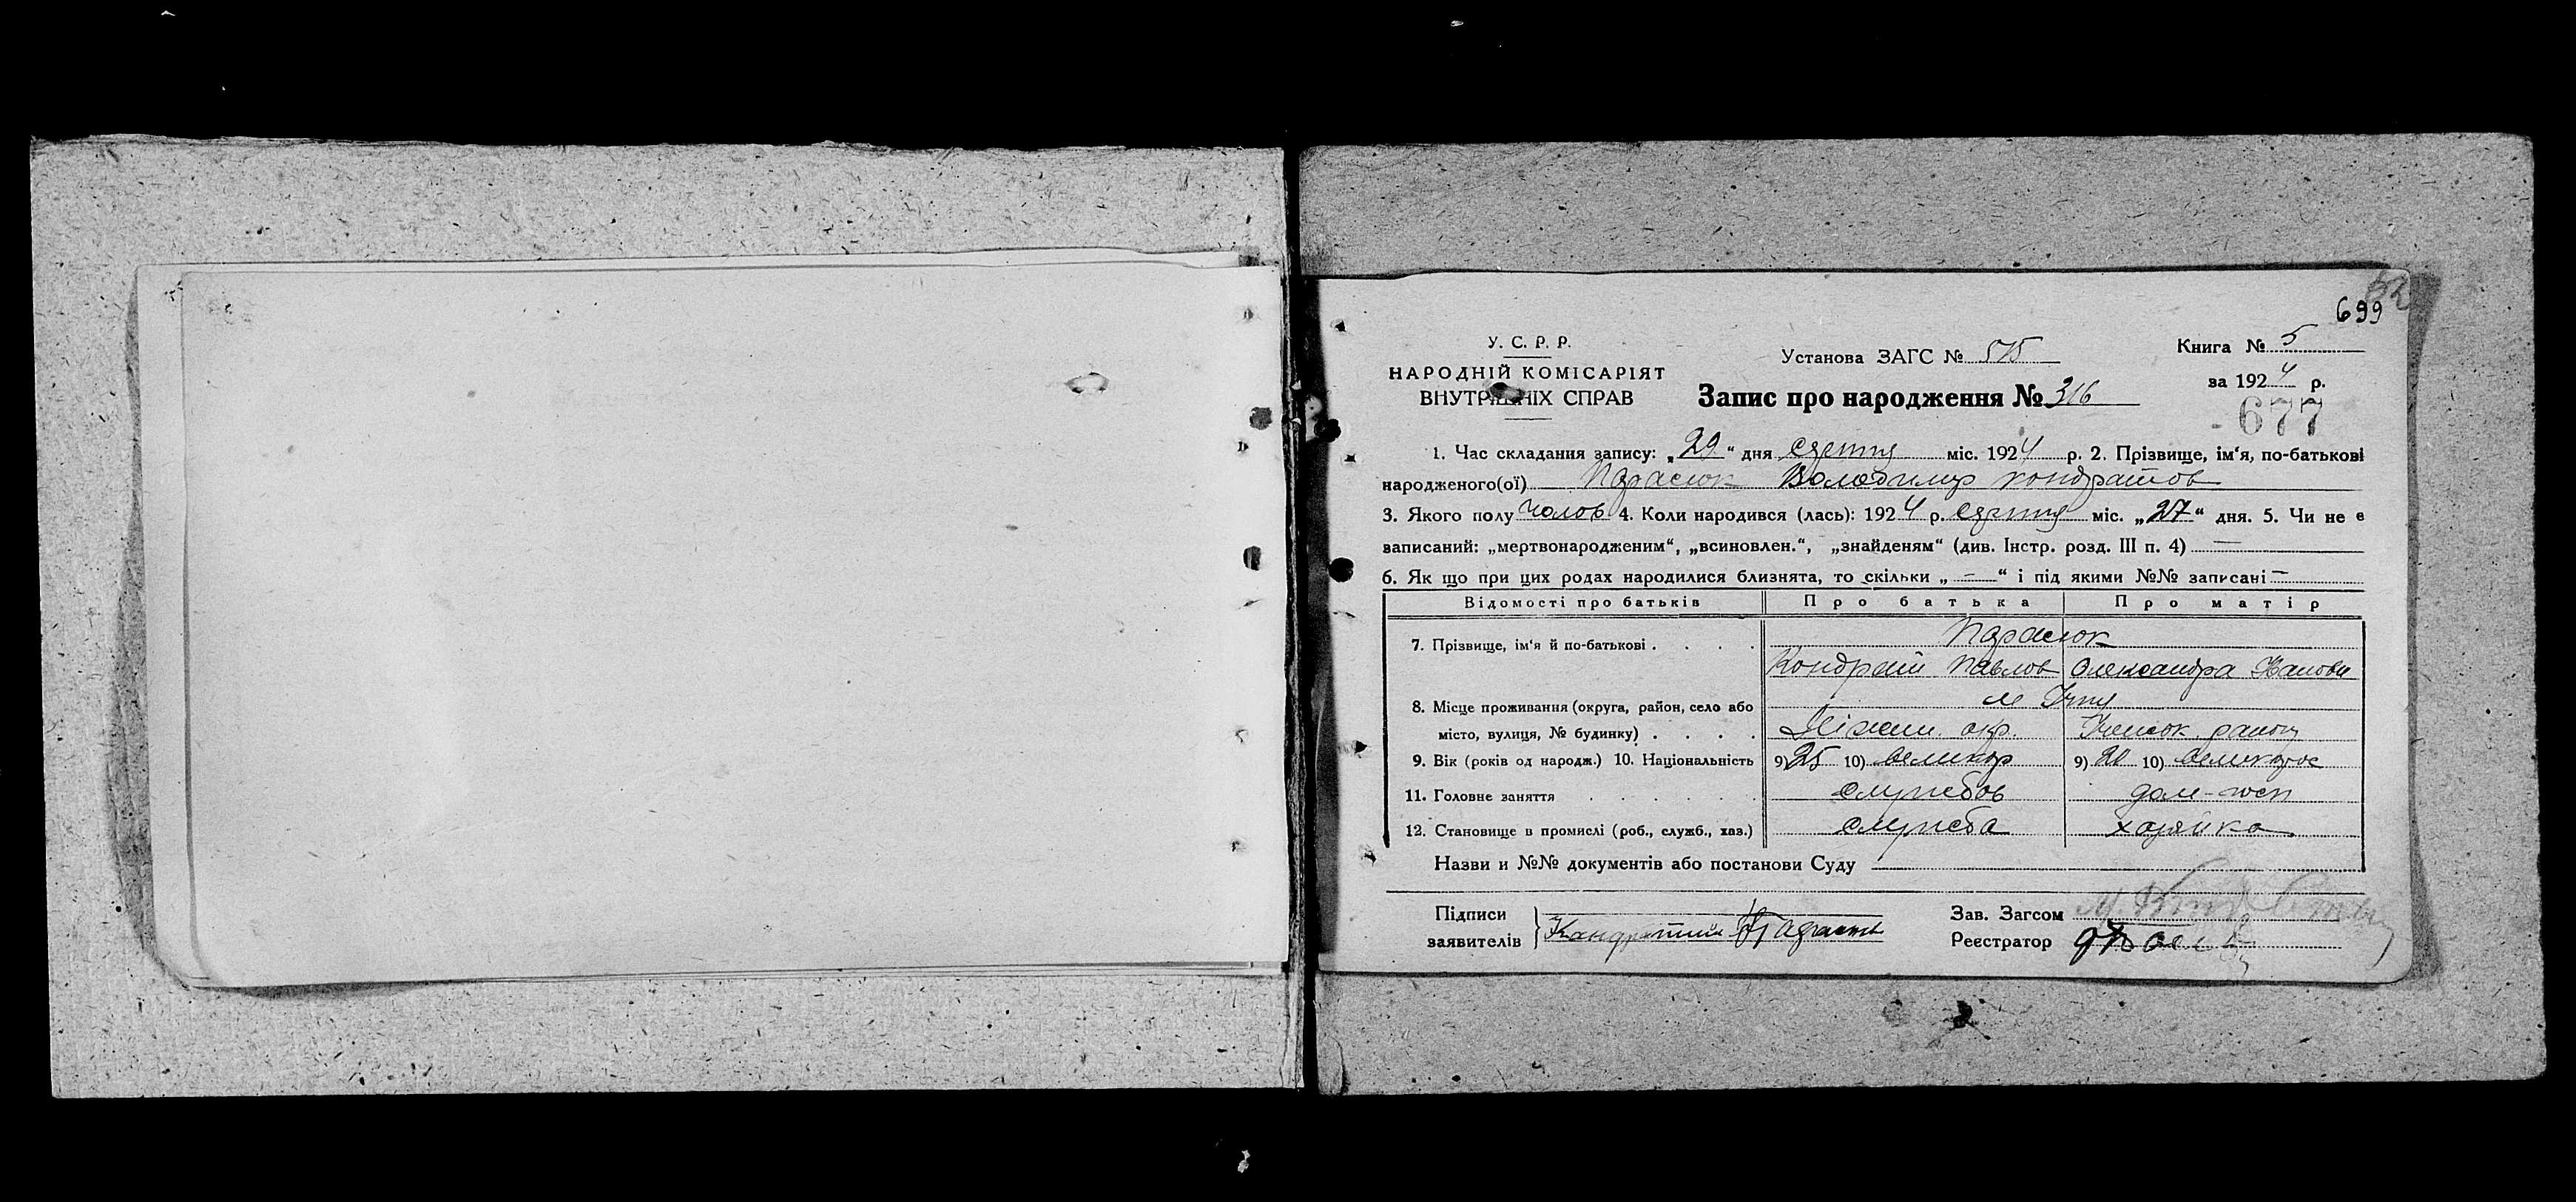 699
У. С. Р. Р.
НАРОДНІЙ КОМІСАРІЯТ
ВНУТРІШНІХ СПРАВ
Установа ЗАГС № 515
Книга № 5
за 1924 р.
Запис про народження № 316
677
1. Час складання запису: „29“ дня серпня міс. 1924 р. 2. Прізвище, ім‘я, по-батькові
народженого(ої) Володимир Кондратов
3. Якого полу чолов 4. Коли народився (лась): 1924 р. серпня міс. „27“ дня. 5. Чи не є
записаний: „мертвонародженим“, „всиновлен.“, „знайденям“ (див. Інстр. розд. III п. 4) —
6. Як що при цих родах народилися близнята, то скільки „ — “ і під якими №№ записані —
Відомості про батьків Про батька Про матір
7. Прізвище, ім‘я й по-батькові . . . .
Кондрат Павлов Олександра Іванові
8. Місце проживання (округа, район, село або м
місто, вулиця, № будинку) . . . . Ніжин. окр. району
9. Вік (років од народж.) 10. Національність 9) 25 10) великор 9) 20 10) великорос
11. Головне заняття . . . . . . службов дом-госп
12. Становище в промислі (роб., служб., хаз.) служба хазяйка
Назви и №№ документів або постанови Суду
Підписи
заявителів
Зав. Загсом
Реєстратор